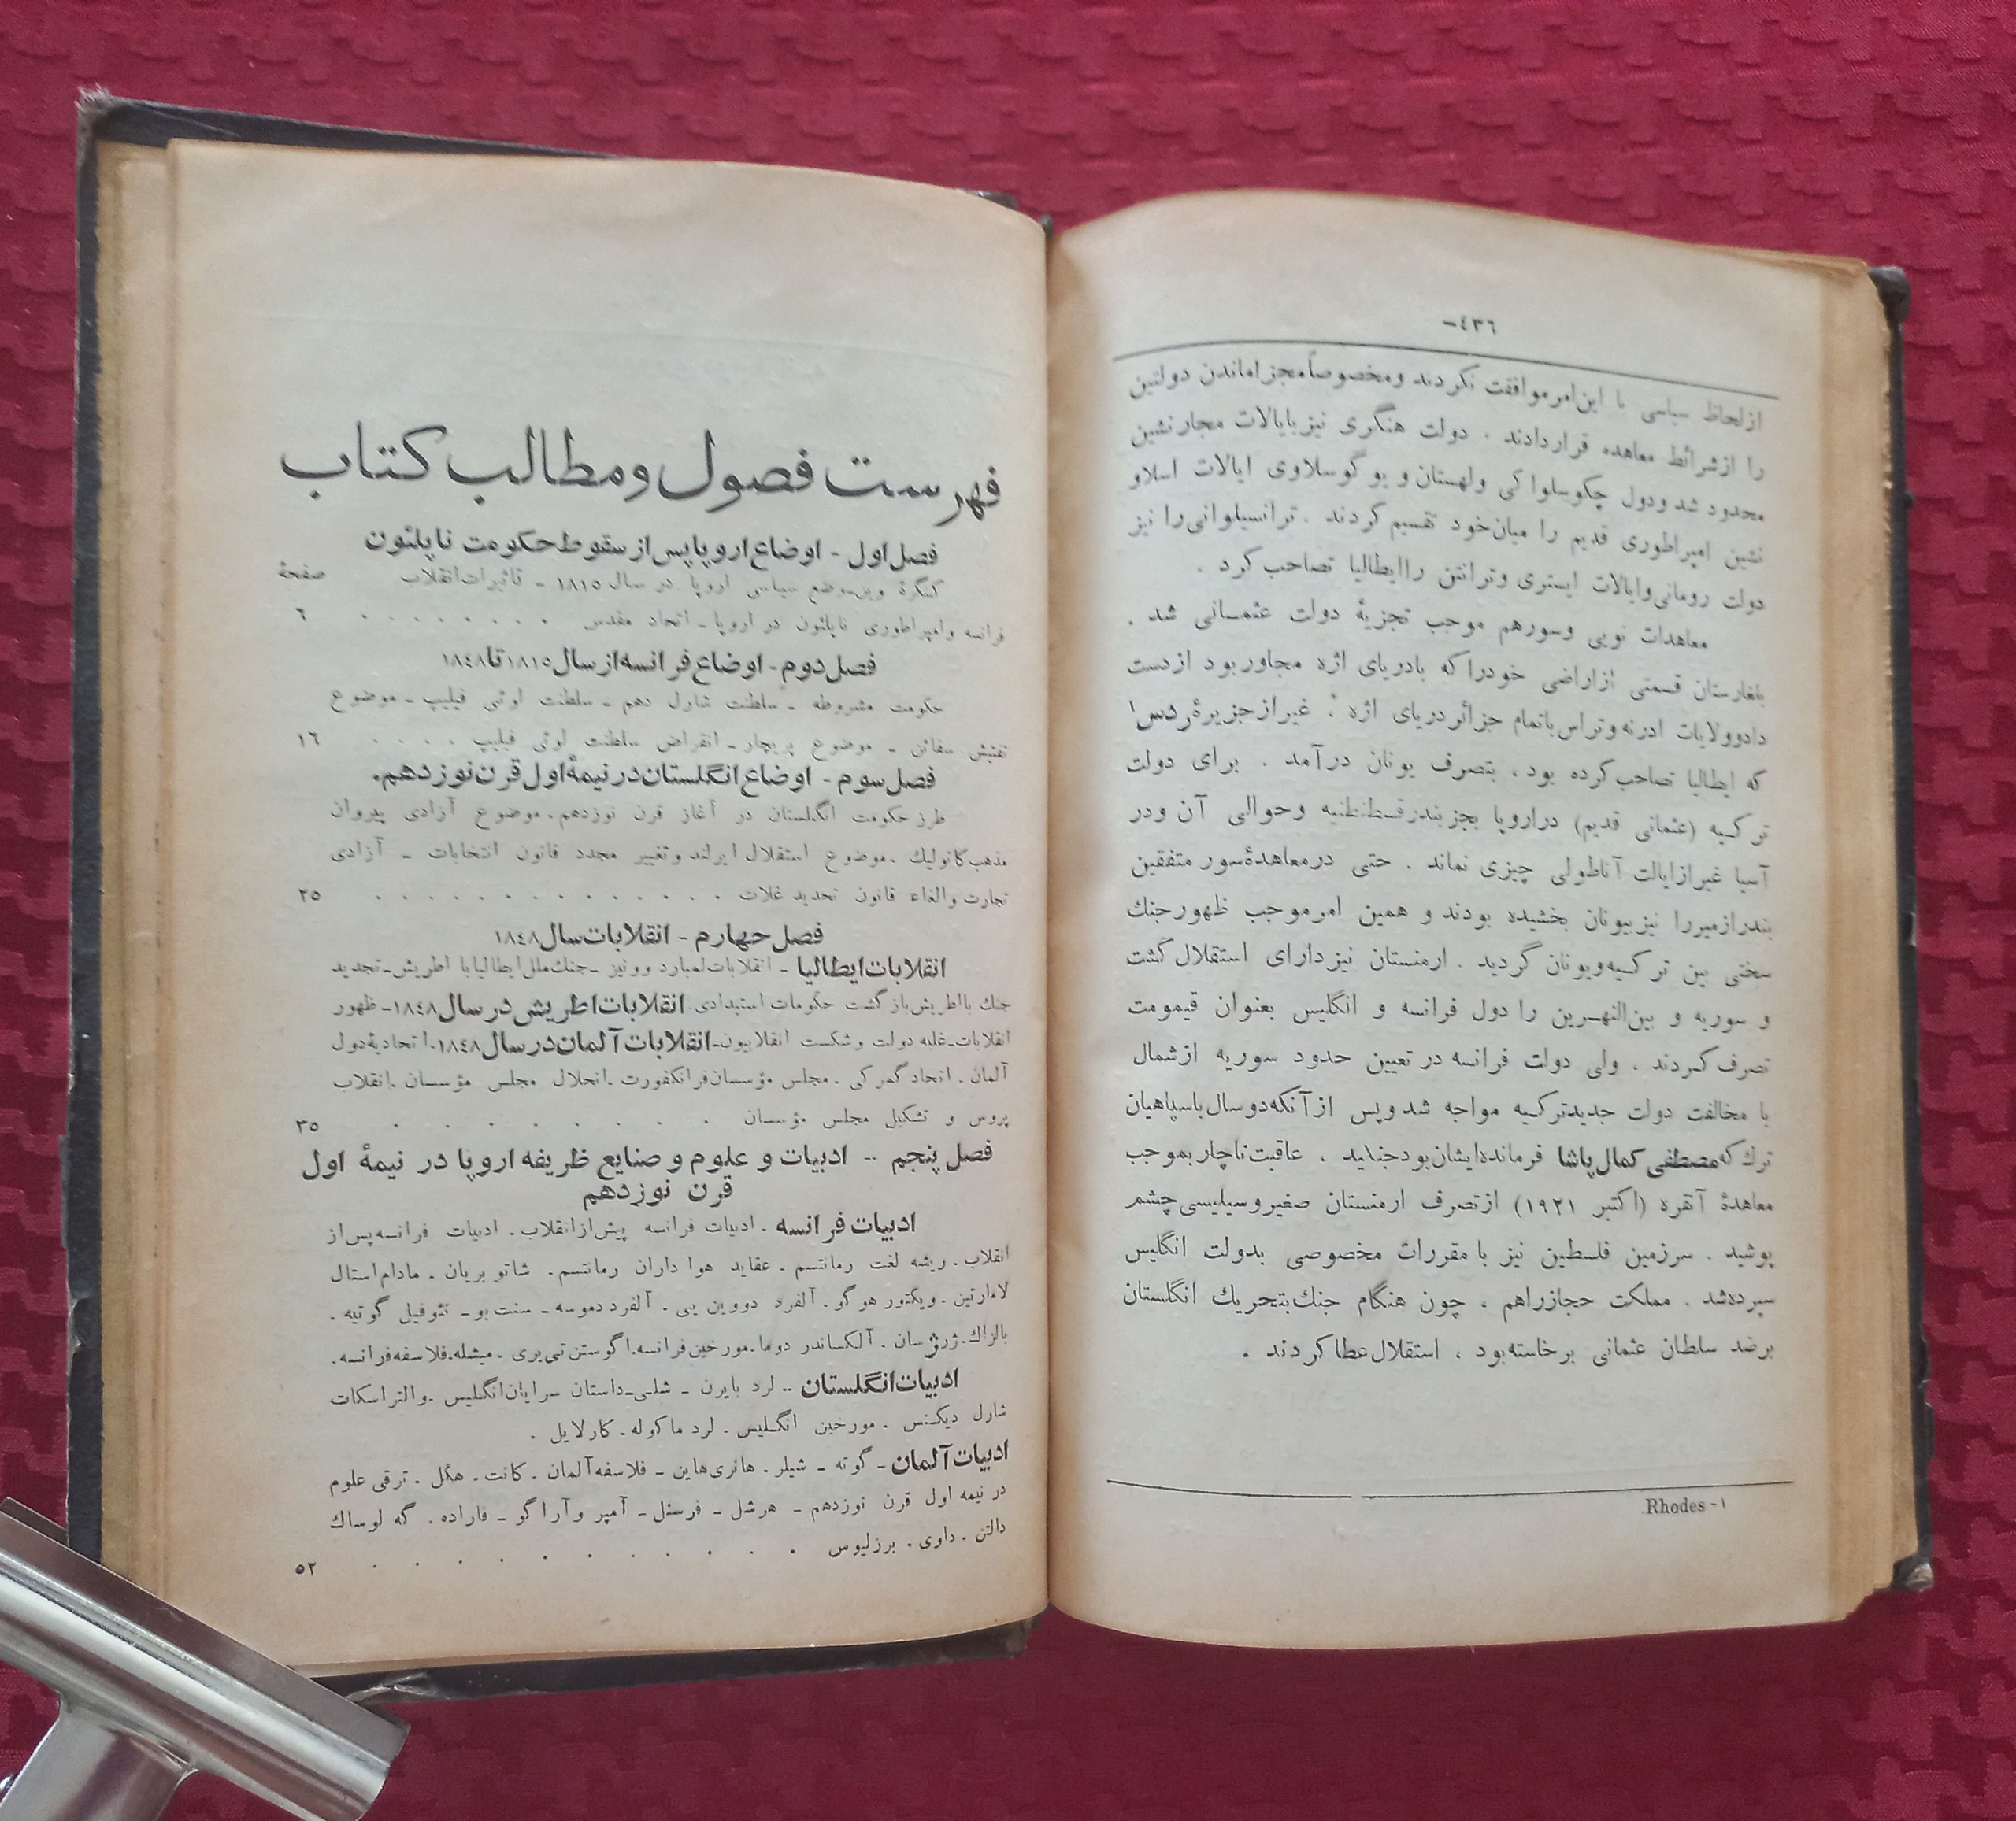 -٤٣٦
از لحاظ سیاسی با این امر موافقت نکردند و مخصوصاً مجزا ماندن دولتین
را از شرائط معاهده قرار دادند . دولت هنگری نیز بایالات مجار نشین
محدود شد و دول چکوسلواکی و لهستان و یوگوسلاوی ایالات اسلاو
نشین امپراطوری قدیم را میان خود تقسیم کردند . ترانسیلوانی را نیز
دولت رومانی و ایالات ایستری و ترانتن را ایطالیا تصاحب کرد .
معاهدات نویی و سور هم موجب تجزیهٔ دولت عثمانی شد .
بلغارستان قسمتی از اراضی خود را که بادریای اژه مجاور بود از دست
داد و ولایات ادرنه و تراس باتمام جزائر دریای اژه ، غیر از جزیرهٔ ردس ۱
که ایطالیا تصاحب کرده بود ، بتصرف یونان درآمد . برای دولت
ترکیه (عثمانی قدیم) در اروپا بجز بندر قسطنطنیه و حوالی آن و در
آسیا غیر از ایالت آناطولی چیزی نماند . حتی در معاهدهٔ سور متفقین
بندر ازمیر را نیز بیونان بخشیده بودند و همین امر موجب ظهور جنك
سختی بین ترکیه و یونان گردید . ارمنستان نیز دارای استقلال گشت
و سوریه و بین‌النهرین را دول فرانسه و انگلیس بعنوان قیمومت
تصرف کردند . ولی دولت فرانسه در تعیین حدود سوریه از شمال
با مخالفت دولت جدید ترکیه مواجه شد و پس از آنکه دو سال با سپاهیان
ترك که مصطفی کمال پاشا فرمانده ایشان بود جنگید ، عاقبت ناچار بموجب
معاهدهٔ آنقره (اکتبر ۱۹۲۱) از تصرف ارمنستان صغیر و سیلیسی چشم
پوشید . سرزمین فلسطین نیز با مقررات مخصوصی بدولت انگلیس
سپرده شد . مملکت حجاز را هم ، چون هنگام جنك بتحریك انگلستان
بر ضد سلطان عثمانی برخاسته بود ، استقلال عطا کردند .
۱- Rhodes
فهرست فصول و مطالب کتاب
فصل اول - اوضاع اروپا پس از سقوط حکومت ناپلئون
کنگرهٔ وین-وضع سیاسی اروپا در سال ۱۸۱۵ - تاثیرات انقلاب صفحهٔ
فرانسه و امپراطوری ناپلئون در اروپا - اتحاد مقدس . . . . . . . ٦
فصل دوم - اوضاع فرانسه از سال ۱۸۱۵ تا ۱۸٤۸
حکومت مشروطه - سلطنت شارل دهم - سلطنت لوئی فیلیپ - موضوع
تفتیش سفائن - موضوع پریچار - انقراض سلطنت لوئی فیلیپ . . . . ۱٦
فصل سوم - اوضاع انگلستان در نیمهٔ اول قرن نوزدهم.
طرز حکومت انگلستان در آغاز قرن نوزدهم . موضوع آزادی پیروان
مذهب کاتولیك . موضوع استقلال ایرلند و تغییر مجدد قانون انتخابات - آزادی
تجارت و الغاء قانون تحدید غلات . . . . . . . . . . . ۲۵
فصل چهارم - انقلابات سال ۱۸٤۸
انقلابات ایطالیا - انقلابات لمبارد و ونیز - جنك ملل ایطالیا با اطریش - تجدید
جنك با اطریش بازگشت حکومات استبدادی انقلابات اطریش در سال ۱۸٤۸ - ظهور
انقلابات - غلبه دولت و شکست انقلابیون - انقلابات آلمان در سال ۱۸٤۸. اتحادیهٔ دول
آلمان . اتحاد گمرکی . مجلس مؤسسان فرانکفورت . انحلال مجلس مؤسسان . انقلاب
پروس و تشکیل مجلس مؤسسان . . . . . . . . ۳۵
فصل پنجم -- ادبیات و علوم و صنایع ظریفه اروپا در نیمهٔ اول
قرن نوزدهم
ادبیات فرانسه . ادبیات فرانسه پیش از انقلاب . ادبیات فرانسه پس از
انقلاب . ریشه لغت رمانتسم . عقاید هوا داران رمانتسم . شاتو بریان . مادام استال
لامارتین . ویکتور هوگو . آلفرد دووین یی . آلفرد دموسه - سنت بو - تئوفیل گوتیه .
بالزاك . ژرژسان . آلکساندر دوما . مورخین فرانسه . اگوستن تی‌یری . میشله . فلاسفه فرانسه .
ادبیات انگلستان -- لرد بایرن - شلی - داستان سرایان انگلیس . والتر اسکات
شارل دیکنس . مورخین انگلیس . لرد ماکوله . کارلایل .
ادبیات آلمان - گوته - شیلر . هانری هاین - فلاسفه آلمان . کانت . هگل . ترقی علوم
در نیمه اول قرن نوزدهم - هرشل - فرسنل - آمپر و آراگو - فاراده . گه لوساك
دالتن . داوی . برزلیوس . . . . . . . . . . . ۵۲